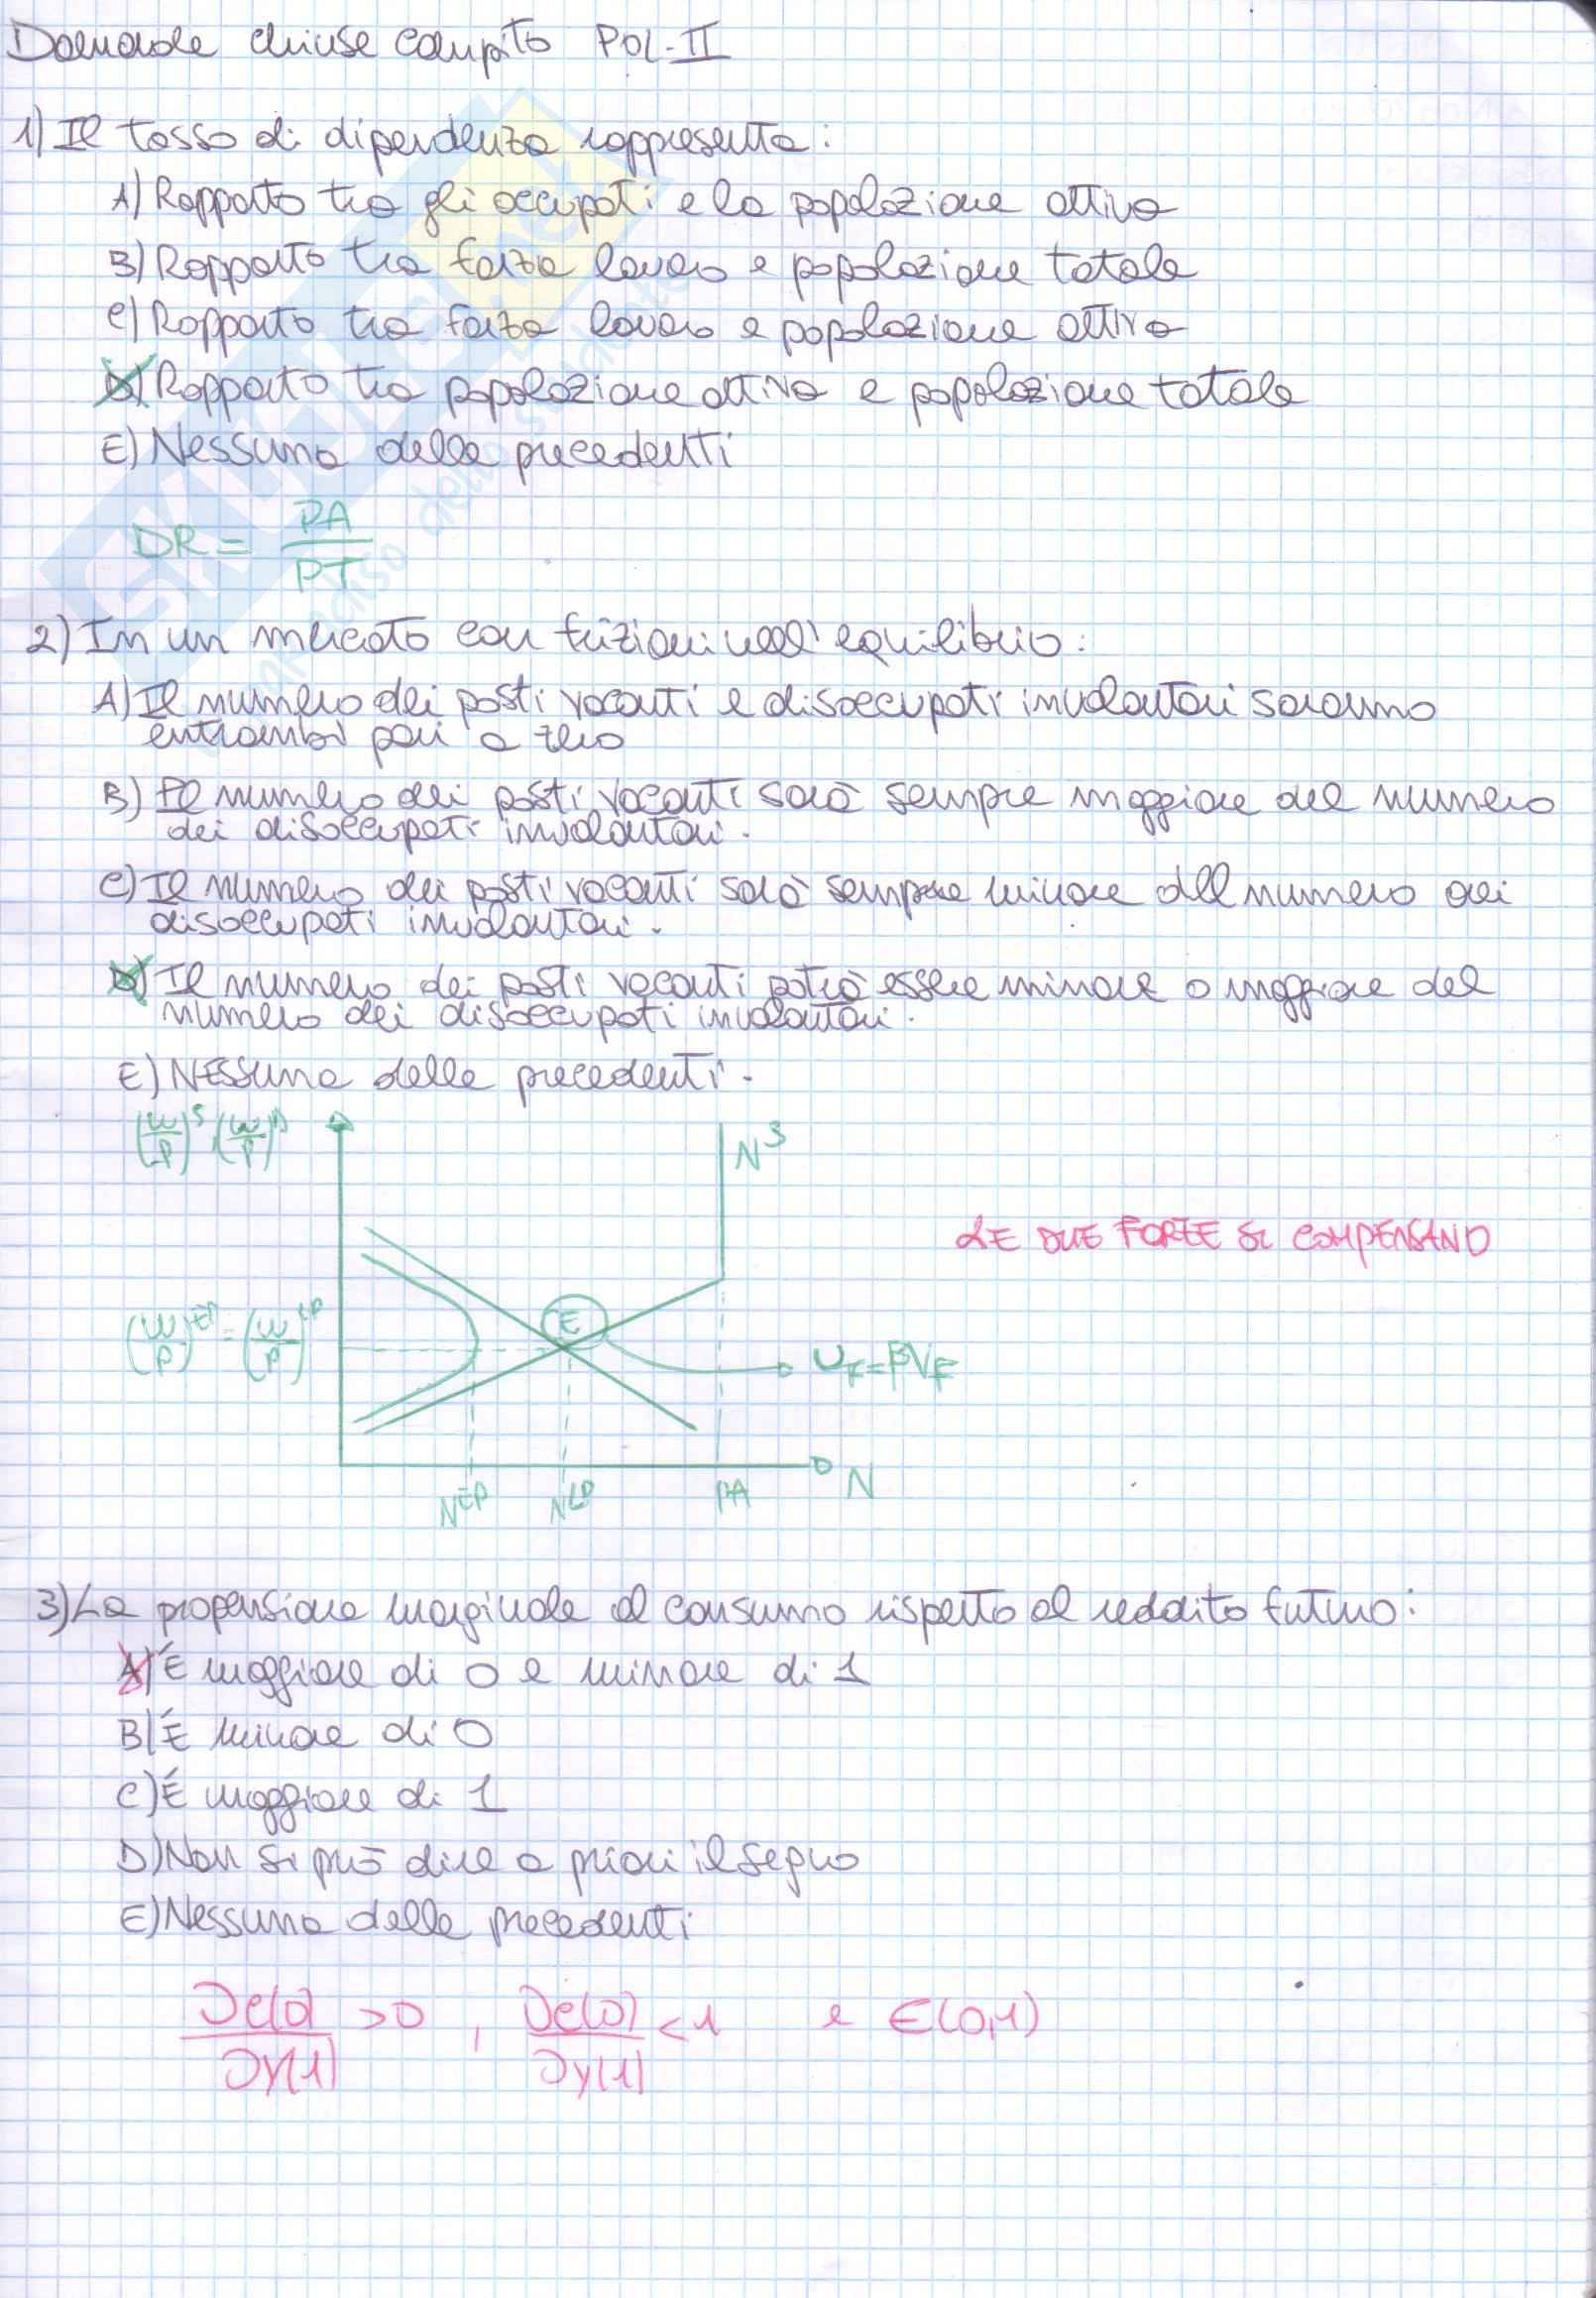 Domande chiuse compito POL-II
1) Il tasso di dipendenza rappresenta:
A) Rapporto tra gli occupati e la popolazione attiva
B) Rapporto tra forza lavoro e popolazione totale
C) Rapporto tra forza lavoro e popolazione attiva
D) Rapporto tra popolazione attiva e popolazione totale
E) Nessuna delle precedenti
DR = PA/PT
2) In un mercato con frizioni nell'equilibrio:
A) Il numero dei posti vacanti e disoccupati involontari saranno
entrambi pari a zero
B) Il numero dei posti vacanti sarà sempre maggiore del numero
dei disoccupati involontari.
C) Il numero dei posti vacanti sarà sempre minore del numero dei
disoccupati involontari.
D) Il numero dei posti vacanti potrà essere minore o maggiore del
numero dei disoccupati involontari.
E) Nessuna delle precedenti.
(W/P)^S, (W/P)^D
N^S
LE DUE FORZE SI COMPENSANO
E
(W/P)^EP = (W/P)^LP
U_F = βV_F
N^EP N^LP PA N
3) La propensione marginale al consumo rispetto al reddito futuro:
A) É maggiore di 0 e minore di 1
B) É minore di 0
C) É maggiore di 1
D) Non si può dire a priori il segno
E) Nessuna delle precedenti
∂c(0)/∂y(1) > 0 , ∂c(0)/∂y(1) < 1 e ∈(0,1)